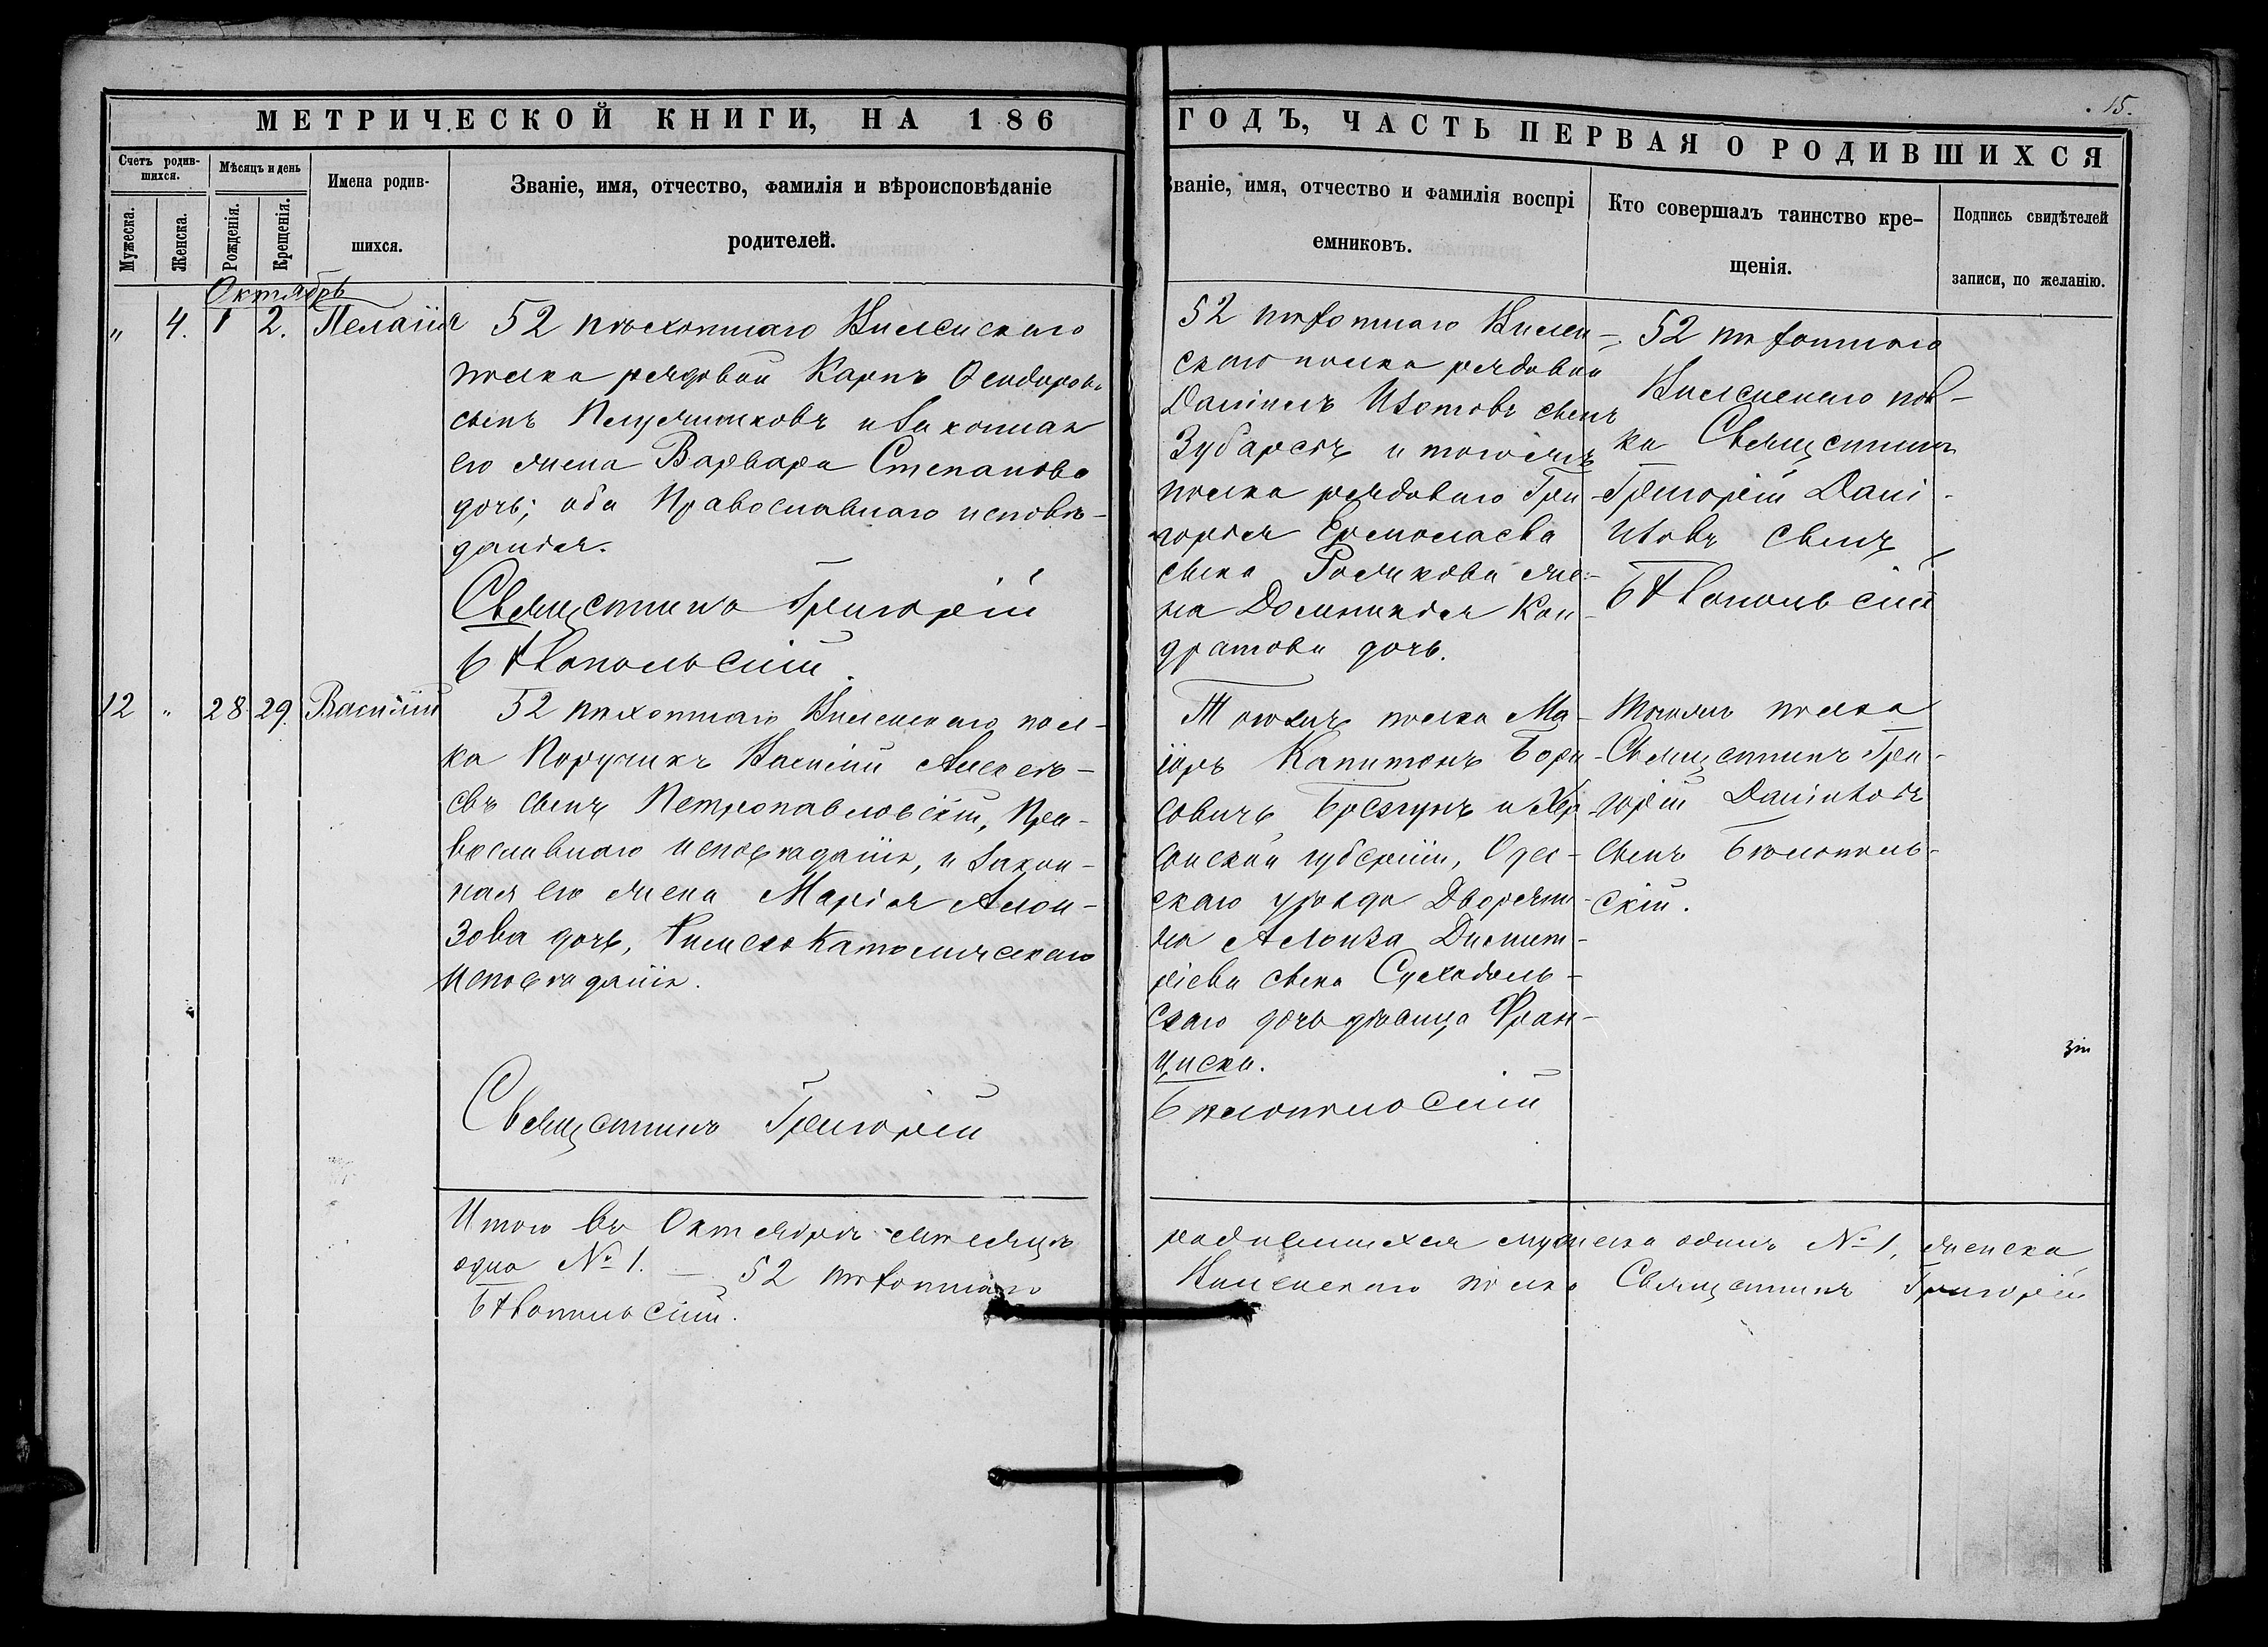 15.
МЕТРИЧЕСКОЙ КНИГИ, НА 186
ГОДЪ, ЧАСТЬ ПЕРВАЯ О РОДИВШИХСЯ
Счетъ родив-
шихся.
Мужеска.
Женска.
Мѣсяцъ и день
Рожденія.
Крещенія.
Имена родив-
шихся.
Званіе, имя, отчество, фамилія и вѣроисповѣданіе
родителей.
Званіе, имя, отчество и фамилія воспрі
емниковъ.
Кто совершалъ таинство кре-
щенія.
Подпись свидѣтелей
записи, по желанію.
Октябрь
„ 4. 1 2. Пелагія
52 пѣхотнаго Виленскаго
полка рядовой Карпъ Ѳеодоровъ
сынъ и законная
его жена Варвара Степанова
дочь; оба Православнаго исповѣ-
данія.
Священникъ Григорій
Бѣлопольскій.
52 пѣхотнаго Вилен-
скаго полка рядовой
Даніилъ Изотовъ сынъ
Зубаревъ и тогожъ
полка рядоваго Гри-
горія Ермолаева
сына же-
на Домникія Кон-
дратова дочь.
52 пѣхотнаго
Виленскаго пол-
ка Священникъ
Григорій Дані-
иловъ сынъ
Бѣлопольскій
12 „ 28. 29. Василій
52 пѣхотнаго Виленскаго пол-
ка Поручикъ Василій Алексѣ-
евъ сынъ Петропавловскій, Пра-
вославнаго исповѣданія, и закон-
ная его жена Марія Алои-
зова дочь, Римско Католическаго
исповѣданія.
Священникъ Григорій
Тогожъ полка Ма-
іоръ Капитонъ Бори-
совичъ и Хер-
сонской губерніи, Одес-
скаго уѣзда Дворяни-
на Алоиза Димит-
ріева сына Суходоль-
скаго дочь дѣвица Фран-
циска.
Бѣлопольскій
Тогожъ полка
Священникъ Гри-
горій Даніиловъ
сынъ Бѣлополь-
скій.
Итого въ Октябрѣ мѣсяцѣ
родившихся мужеска одинъ № 1, женска
одна № 1. — 52 пѣхотнаго
Виленскаго полка Священникъ Григорій
Бѣлопольскій.